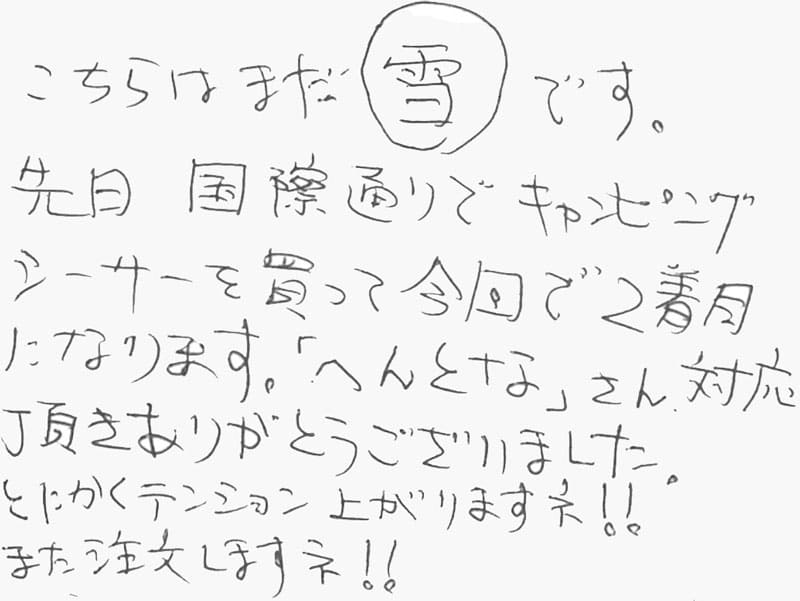 こちらはまだ雪です。
先日 国際通りで キャンピング
シーサーを買って今回で2着目
になります。「へんとな」さん、対応
頂きありがとうございました。
とにかくテンション上がりますネ!!
また注文しますネ!!